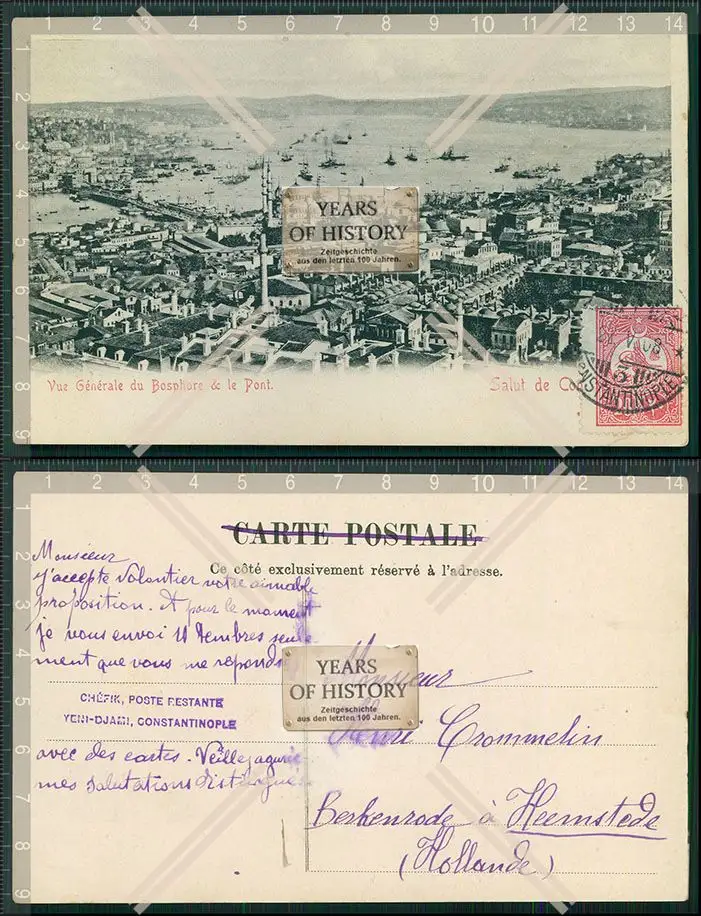 YEARS
OF HISTORY
Zeitgeschichte
aus den letzten 100 Jahren.
Vue Générale du Bosphore & le Pont.
Salut de Co
CARTE POSTALE
Ce côté exclusivement réservé à l'adresse.
Monsieur
j'accepte volontier votre aimable
proposition. Et pour le moment
je vous envoi 11 tembres seule
ment que vous me repondr
CHÉFIK, POSTE RESTANTE
YENI-DJAMI, CONSTANTINOPLE
avec des cartes. Veillez agurie
mes salutations distingués
YEARS
OF HISTORY
Zeitgeschichte
aus den letzten 100 Jahren.
Monsieur
Henri Crommelin
Berkenrode à Heemstede
(Hollande)